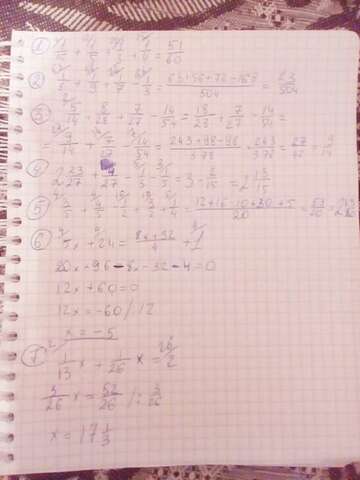 ① 1/10 + 1/5 + 1/3 + 1/4 = 51/60
② 1/8 + 1/9 + 1/7 - 1/3 = (63+56+72-168)/504 = 23/504
③ 5/14 + 8/28 + 7/27 - 14/54 = 18/28 + 7/27 - 14/54 =
= 9/14 + 7/27 - 14/54 = (243+98-98)/378 = 243/378 = 27/42 = 9/14
④ 2 23/27 + 4/27 - 1/3 + 1/5 = 3 - 2/15 = 2 13/15
⑤ 3/5 + 4/5 - 1/2 + 3/2 + 1/4 = (12+16-10+30+5)/20 = 53/20 = 2 13/20
⑥ 5x + 24 = (8x+32)/4 + 1
20x + 96 - 8x - 32 - 4 = 0
12x + 60 = 0
12x = -60 /:12
x = -5
⑦ 1/13 x + 1/26 x = 26/2
3/26 x = 52/26 /: 3/26
x = 17 1/3